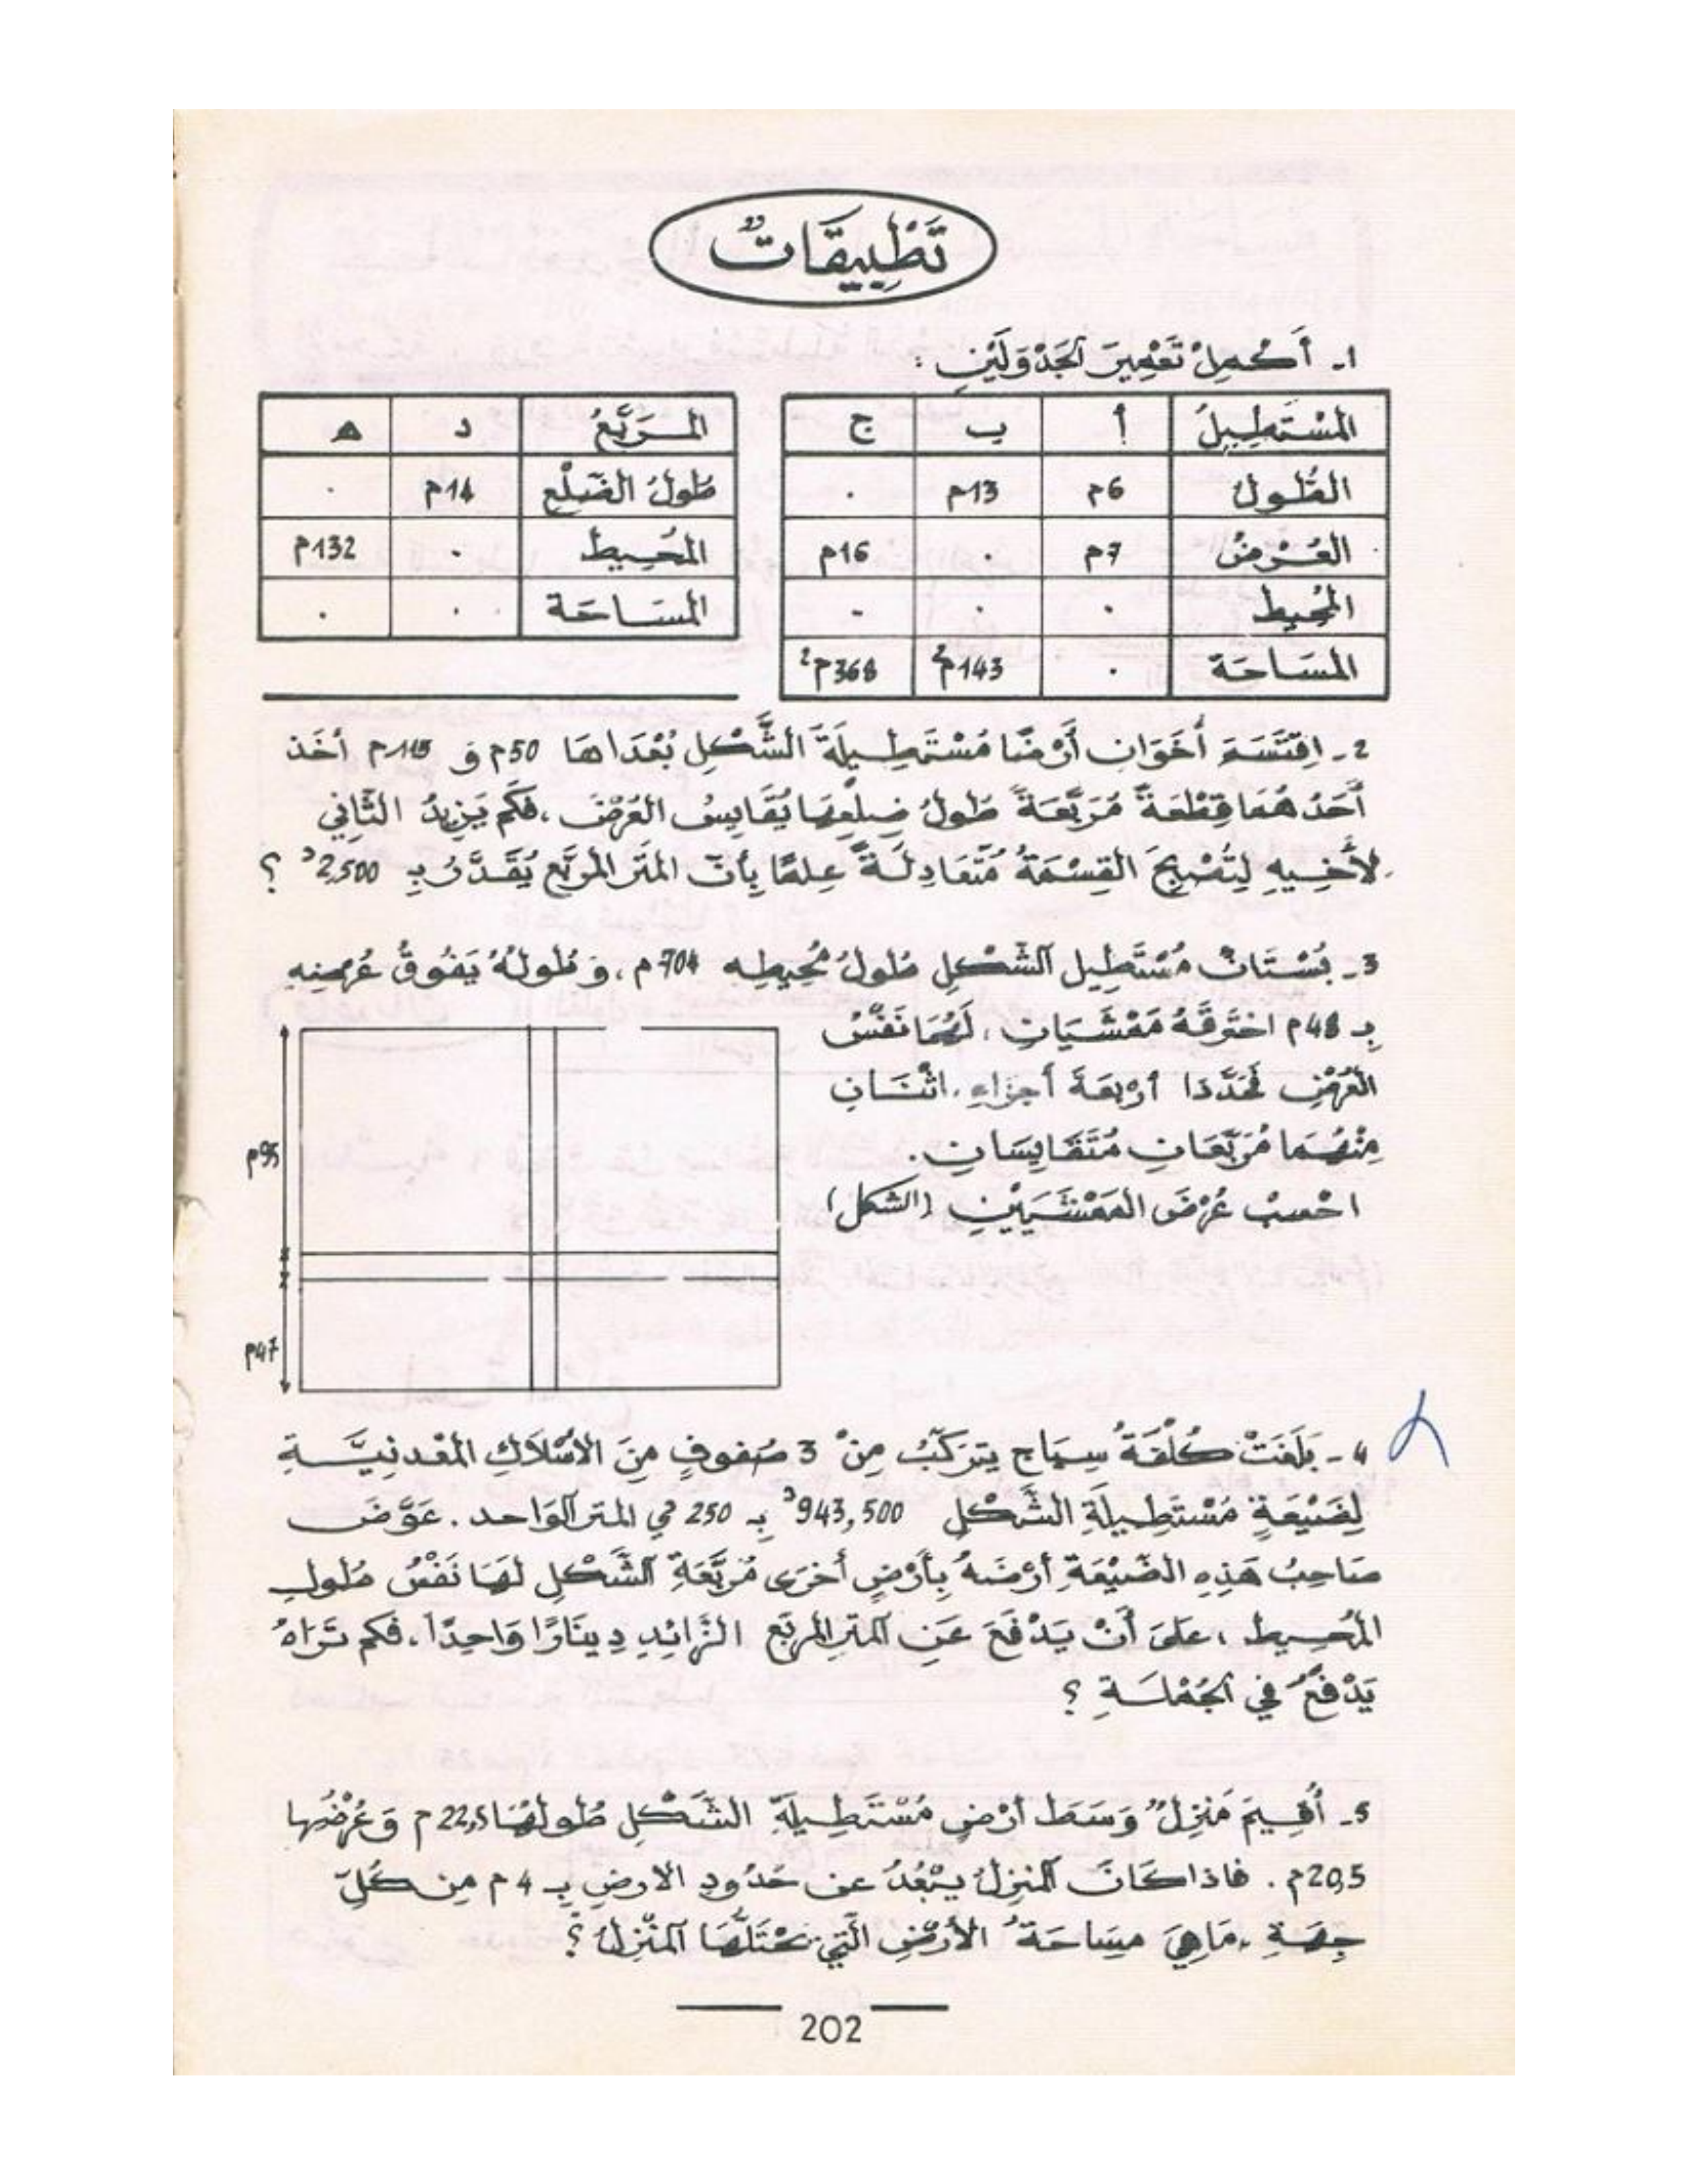 تَطْبِيقَاتٌ
1- أَكْمِلْ تَعْمِيرَ الجَدْوَلَيْنِ :
المُسْتَطِيلُ أ ب ج
الطُّولُ 6م 13م .
العَرْضُ 7م . 16م
المُحِيطُ . . -
المسَاحَة . 143م² 368م²
المُرَبَّعُ د ه
طُولُ الضّلْعِ 14م .
المُحِيطُ . 132م
المسَاحَة . .
2- اِقْتَسَمَ أَخَوَانِ أَرْضًا مُسْتَطِيلَةَ الشَّكْلِ بُعْدَاهَا 50م وَ 115م أخَذَ
أَحَدُهُمَا قِطْعَةً مُرَبَّعَةً طُولُ ضِلْعِهَا يُقَايِسُ العَرْضَ، فَكَمْ يَزِيدُ الثَّانِي
لأَخِيهِ لِتُصْبِحَ القِسْمَةُ مُتَعَادِلَةً عِلمًا بِأَنّ المتر المربّع يُقَدَّرُ بِـ 2,500د ؟
3- بُسْتَانٌ مُسْتَطِيل الشّكْلِ طُولُ مُحِيطِهِ 704م، وَطُولُهُ يَفُوقُ عُرْضِهِ
بِـ 48م اخترقَهُ مَمْشَيَانِ، لَهُمَا نَفْسُ
العَرْضِ فَحَدَّدَا أرْبَعَةَ أجزاءٍ، اثْنَانِ
مِنْهُمَا مُرَبَّعَانِ مُتَقَايِسَانِ.
احْسِبْ عُرْضَ المَمْشَيَيْنِ (الشكل)
95م
47م
4- بَلَغَتْ كُلْفَةُ سِيَاجٍ يَتَرَكَّبُ مِنْ 3 صُفوفٍ مِنَ الأَسْلاَكِ المَعْدنِيَّةِ
لِضَيْعَةٍ مُسْتَطِيلَةِ الشَّكْلِ 943,500د بِـ 250 مي المتر الوَاحد. عَوَّضَ
صَاحِبُ هَذِهِ الضَّيْعَةِ أرْضَهُ بِأَرْضٍ أُخْرَى مُرَبَّعَةِ الشَّكْلِ لَهَا نَفْسُ طُولِ
المُحِيطِ ، عَلَى أَنْ يَدْفَعَ عَنِ المترِ المربّع الزّائِدِ دِينَارًا وَاحِدًا، فكم تَرَاهُ
يَدْفَعُ في الجُمْلَةِ ؟
5- أُقِيمَ مَنْزِلٌ وَسَطَ أرْضٍ مُسْتَطِيلَةِ الشَّكْلِ طُولُهَا 22,5م وَعُرْضُهَا
20,5م. فاذا كَانَ المنزِلُ يَبْعُدُ عن حُدُودِ الارضِ بِـ 4م مِن كُلِّ
جِهَةٍ، مَا هِيَ مِسَاحَةُ الأَرْضِ الَّتِي يَحْتَلُّهَا المَنْزِلُ ؟
202